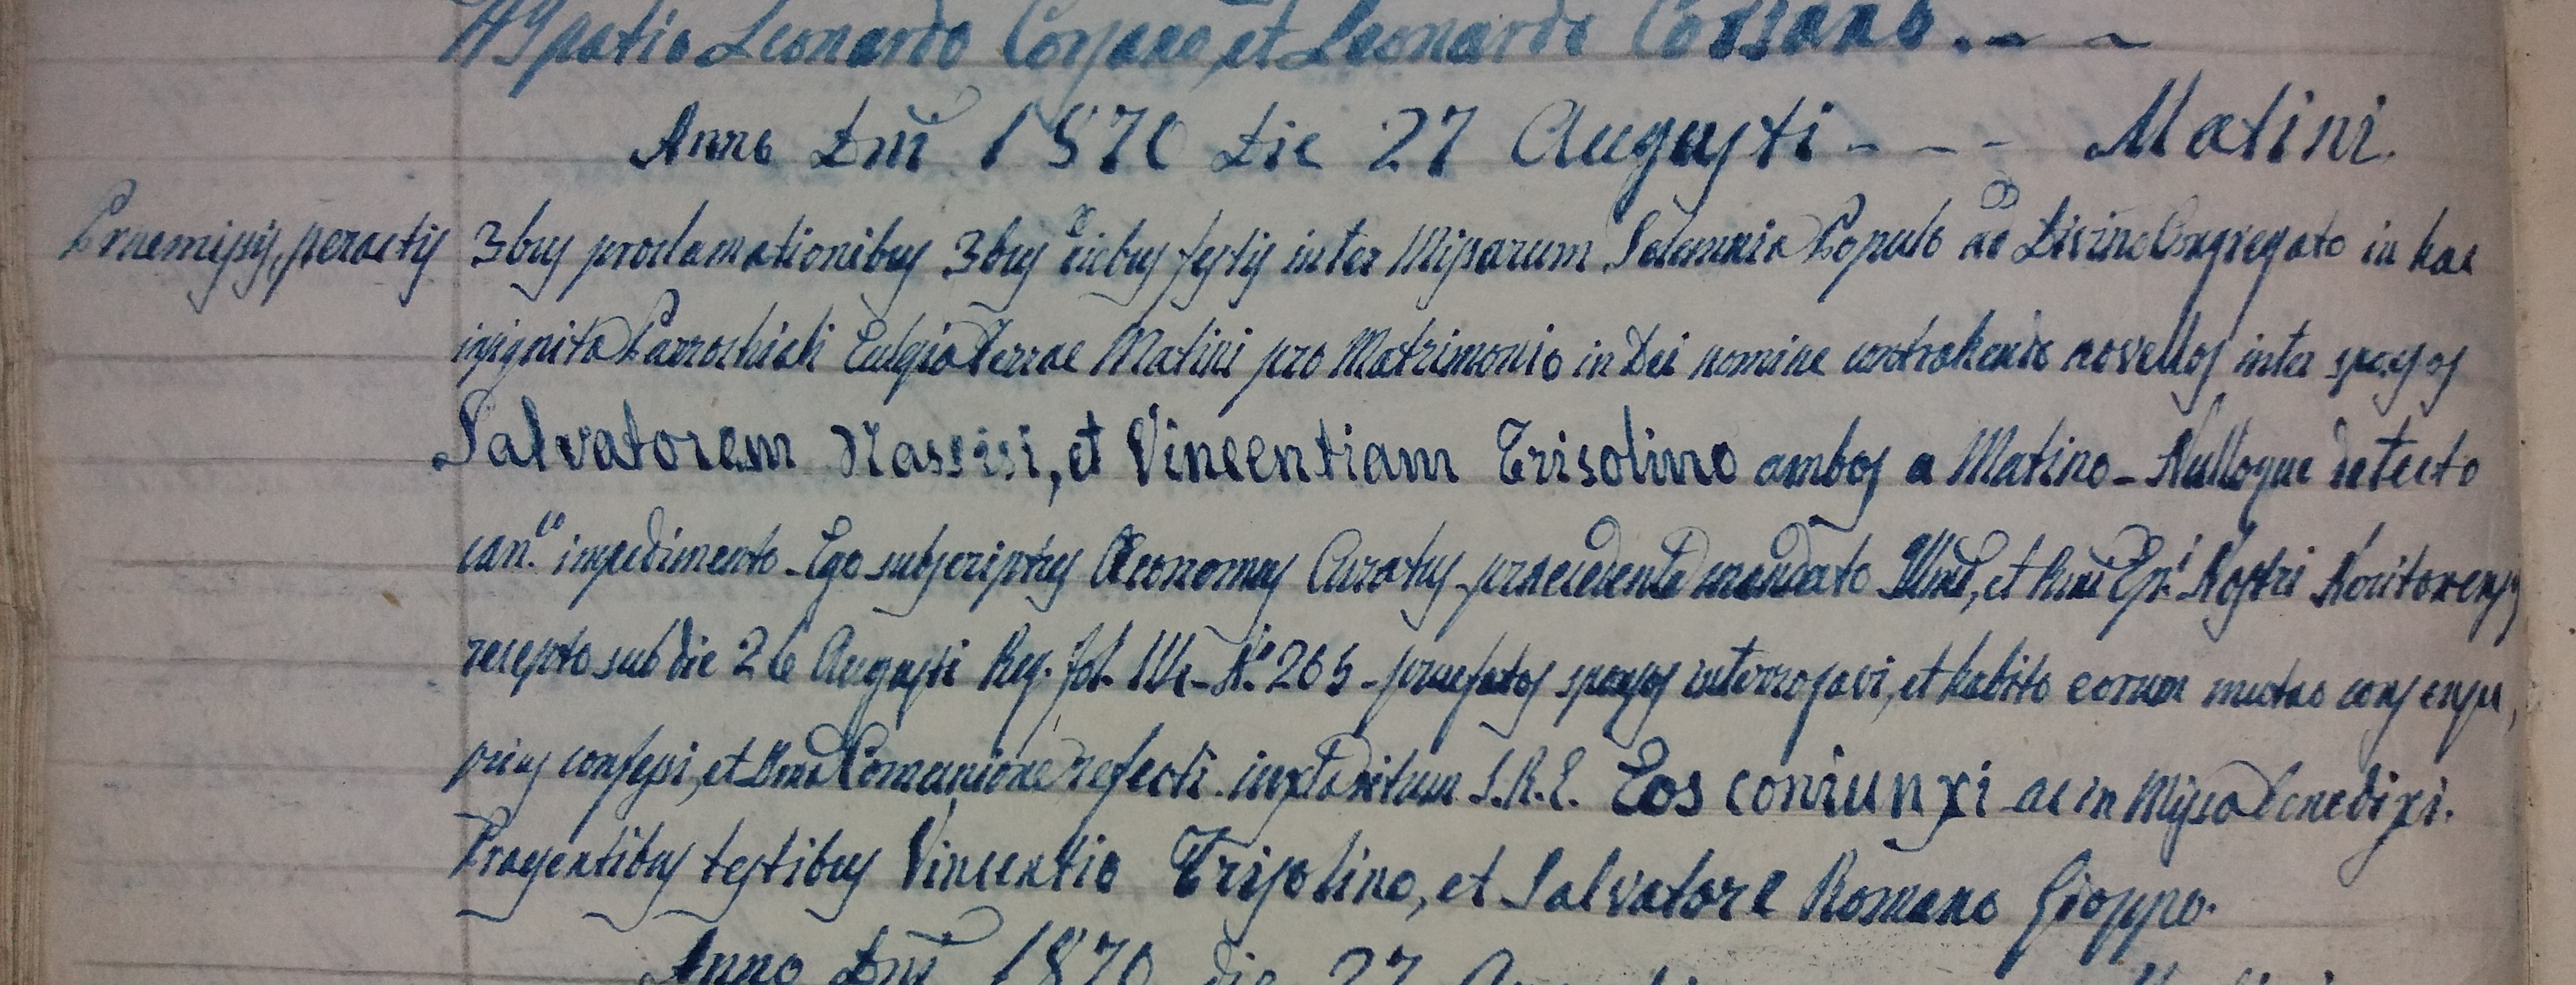 Hypatio Leonardo Corsano, et Leonardo Corsano. - ~
Anno Dñi 1870 Die 27 Augusti - - - Matini.
Praemissis, peractis 3bus proclamationibus 3bus diebus festis inter Missarum Solemnia Populo ad Divina Congregato in hac
insignita Parrochiali Eccl̃sia Terrae Matini pro Matrimonio in Dei nomine contrahendo novellos inter sposos
Salvatorem Nassisi, et Vincentiam Trisolino ambos a Matino - Nulloque detecto
can.co impedimento - Ego subscriptus Oeconomus Curatus praecedente mandato Illmi, et Rmi Epi Nostri Neritonensis
recepto sub die 26 Augusti Reg. fol. - N.o 265 - praefatos sposos interrogavi, et habito eorum mutuo consensu,
prius confessi, et Comunione refecti iuxta ritum S.R.E. Eos coniunxi ac in Missa benedixi.
Praesentibus testibus Vincentio Trisolino, et Salvatore Romano Gioppo.
Anno Dñi 1870 die 27